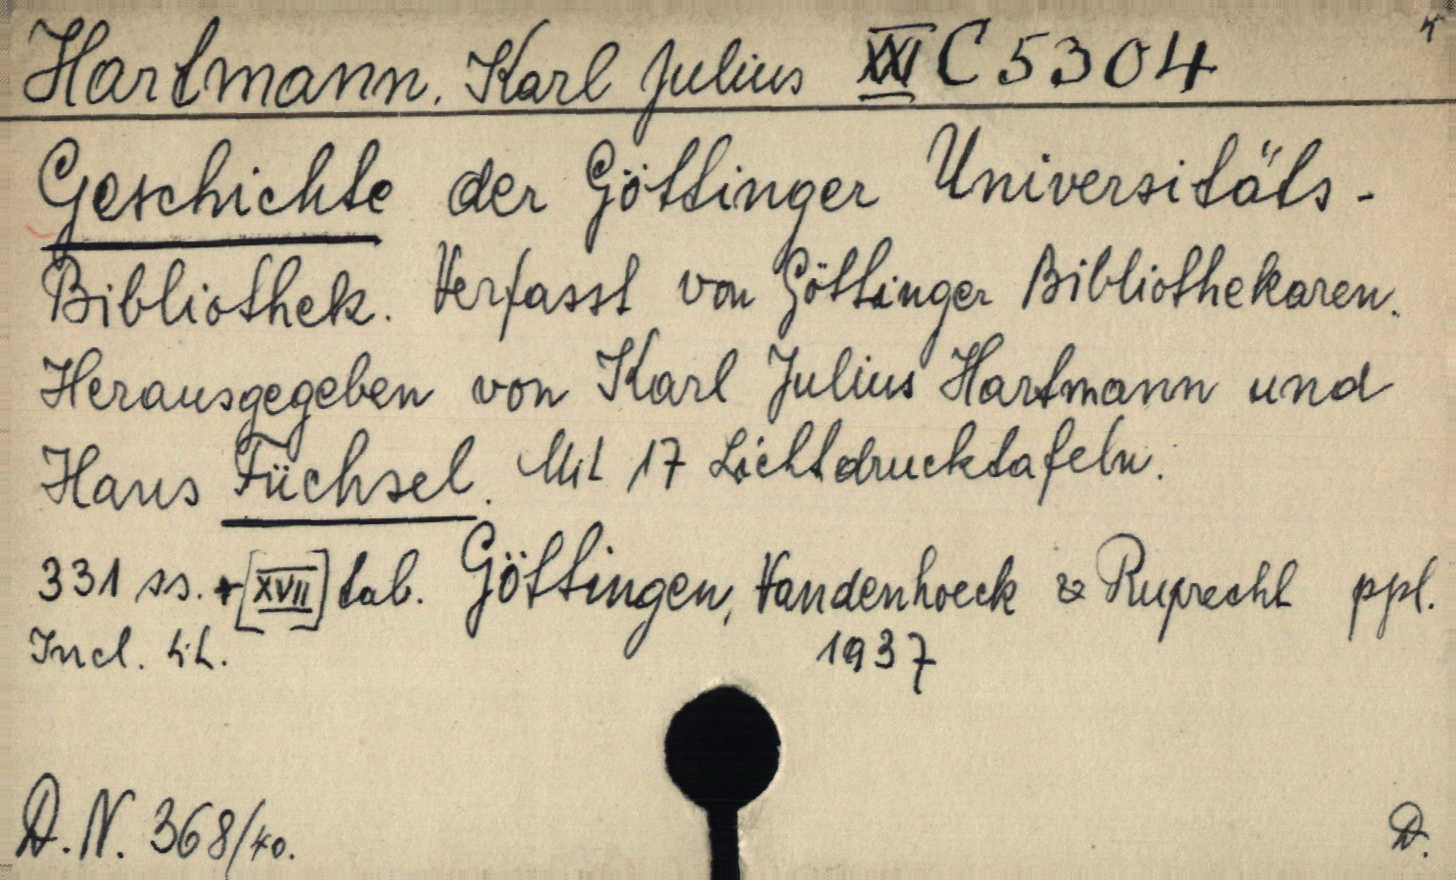 Hartmann. Karl Julius XXI C 5304
Geschichte der Göttinger Universitäts-
Bibliothek. Verfasst von Göttinger Bibliothekaren.
Herausgegeben von Karl Julius Hartmann und
Hans Füchsel. Mit 17 Lichtdrucktafeln.
331 ss. + [XVII] tab. Göttingen, Vandenhoeck & Ruprecht ppl.
Incl. tit. 1937
D. N. 368/40. D.